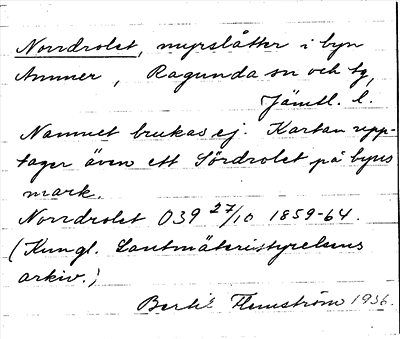 Norrdrolet, myrslåtter i byn
Ammer, Ragunda sn och tg,
Jämtl. l.
Namnet brukas ej. Kartan upp-
tager även ett Sördrolet på byns
mark.
Norrdrolet O39 27/10 1859-64.
(Kungl. Lantmäteristyrelsens
arkiv.)
Bertil Flemström 1936.